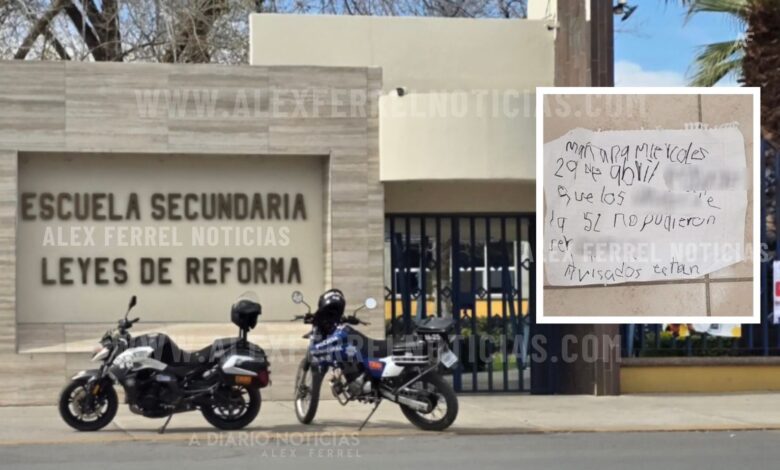 WWW.ALEXFERRELNOTICIAS.COM
ESCUELA SECUNDARIA
ALEX FERREL NOTICIAS
LEYES DE REFORMA
mañana miercoles
29 de abril
que los e
la 52 no pudieron
ser
Avisados estan
ALEX FERREL NOTICIAS
WWW.ALEXFERRELNOTICIAS.COM
A DIARIO NOTICIAS
ALEX FERREL